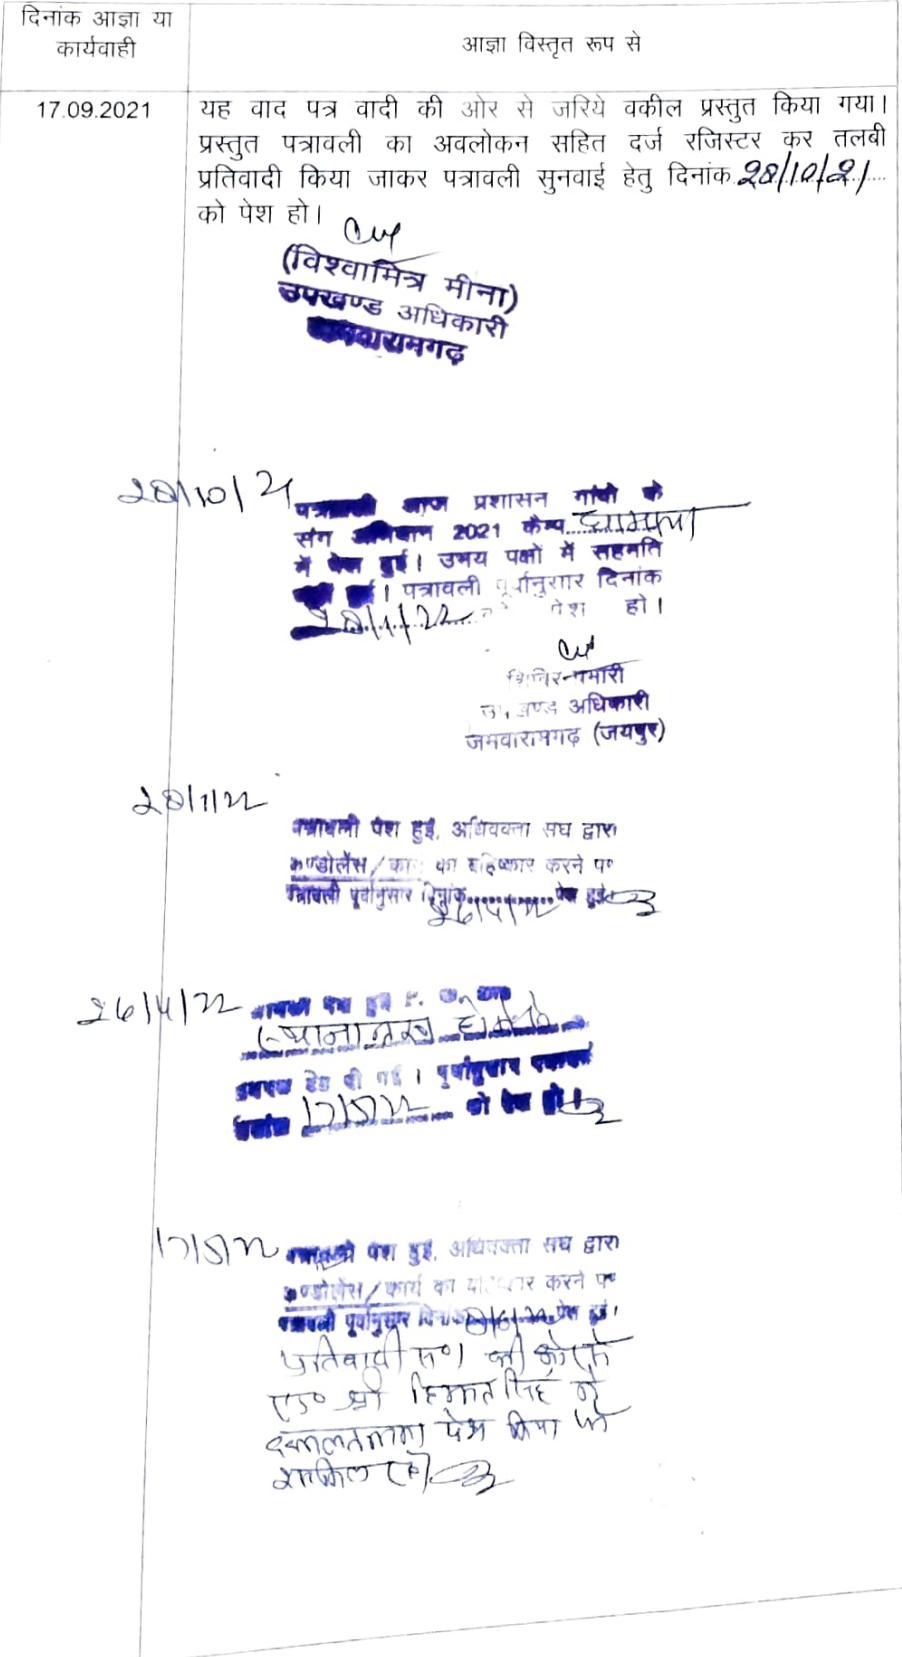 दिनांक आज्ञा या
कार्यवाही
आज्ञा विस्तृत रूप से
17.09.2021
यह वाद पत्र वादी की ओर से जरिये वकील प्रस्तुत किया गया।
प्रस्तुत पत्रावली का अवलोकन सहित दर्ज रजिस्टर कर तलबी
प्रतिवादी किया जाकर पत्रावली सुनवाई हेतु दिनांक 28/10/21
को पेश हो।
(विश्वामित्र मीना)
उपखण्ड अधिकारी
जमवारामगढ़
28/10/21
पत्रावली आज प्रशासन गांवो के
संग अभियान 2021 कैम्प
में पेश हुई। उभय पक्षों में सहमति
पत्रावली पूर्वानुसार दिनांक
28/1/22 को पेश हो।
शिविर प्रभारी
उपखण्ड अधिकारी
जमवारामगढ़ (जयपुर)
28/1/22
पत्रावली पेश हुई, अधिवक्ता संघ द्वारा
कण्डोलेंस/कार्य का बहिष्कार करने पर
पत्रावली पूर्वानुसार दिनांक 26/4/22 पेश हुई
26/4/22
पूर्वानुसार
17/5/22 को पेश हो।
17/5/22
पत्रावली पेश हुई, अधिवक्ता संघ द्वारा
कण्डोलेंस/कार्य का बहिष्कार करने पर
पत्रावली पूर्वानुसार दिनांक पेश हुई।
प्रतिवादी स० 1 की ओर से
एड० श्री हिम्मत सिंह ने
वकालतनामा पेश किया जो
शामिल